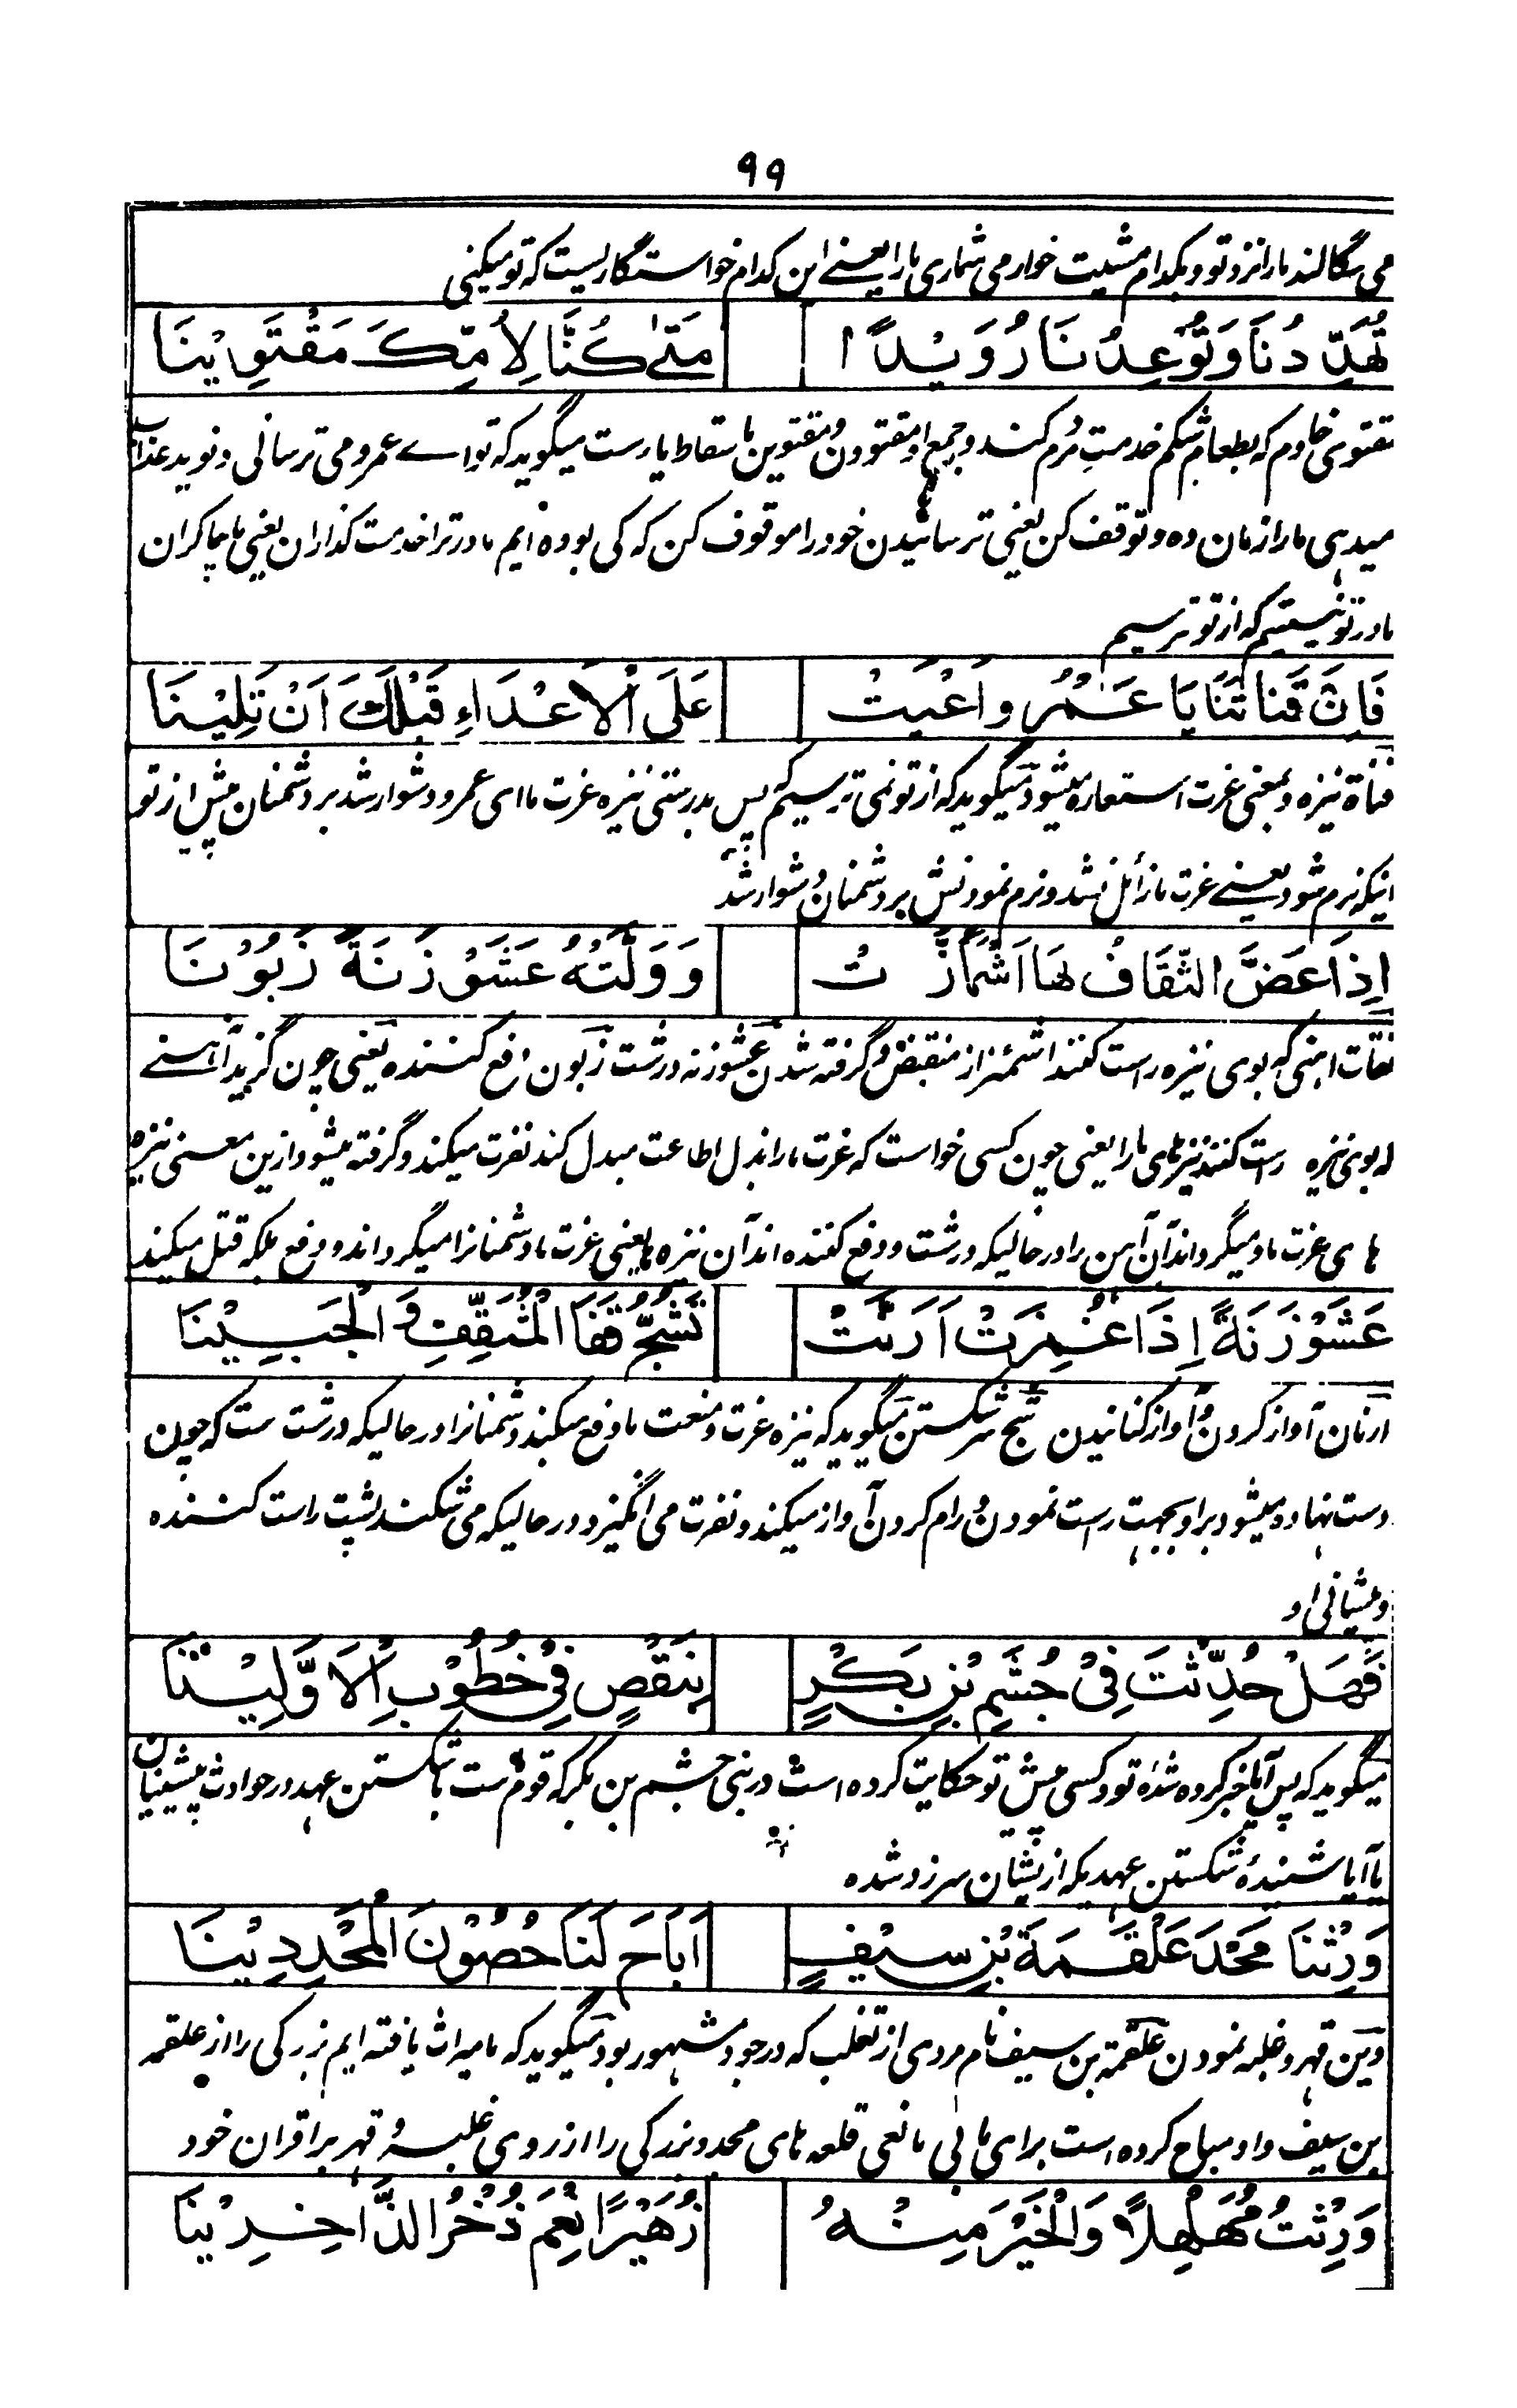 ۹۹
می سگالند ما را نزد تو و بکدام مشیت خوار می شماری ما را یعنے این کدام خواستگاریست که تو میکنی
تُهَدِّدُنَا وَتُوْعِدُنَا رُوَيْدًا مَتٰى كُنَّا لِاُمِّكَ مَقْتَوِيْنَا
مقتوی خادم که بطعام شکم خدمت مردم کند و جمع او مقتوون و مقتوین باسقاط یا رست میگوید که تو اے عمرو می ترسانی و نوید عذاب
میدهی ما را زمان ده و توقف کن یعنی ترسانیدن خود را موقوف کن که کی بوده ایم مادر ترا خدمت گذاران یعنی ما چاکران
مادر تو نیستیم که از تو ترسیم
فَاِنَّ قَنَاتَنَا يَا عَمْرُو اَعْيَتْ عَلَى الْاَعْدَاءِ قَبْلَكَ اَنْ تَلِيْنَا
قناة نیزه و بمعنی عزت استعاره میشود میگوید که از تو نمی ترسیم پس بدرستی نیزه عزت ما ای عمرو دشوار شد بر دشمنان پیش از تو
اینکه نرم شود یعنے عزت ما زائل نشد و نرم نمودنش بر دشمنان دشوار شد
اِذَا عَضَّ الثِّقَافُ لَهَا اشْمَأَزَّتْ وَوَلَّتْهُ عَشَوْزَنَةً زَبُوْنَا
ثقاف اهنی که بوی نیزه راست کنند اشمئزاز منقبض و گرفته شدن عشوزنه درشت زبون دفع کننده یعنی چون گزید آهنے
که بوی نیزه راست کنند نیزهای ما را یعنی چون کسی خواست که عزت ما را بذل اطاعت مبدل کند نفرت میکند و گرفته میشود ازین معنی نیزه
های عزت ما و میگرداند آن آهن را در حالیکه درشت و دفع کننده اند آن نیزه ها یعنی عزت ما دشمنانرا میگرداند و دفع بلکه قتل میکند
عَشَوْزَنَةً اِذَا غُمِزَتْ اَرَنَّتْ تَشُجُّ قَفَا الْمُثَقِّفِ وَالْجَبِيْنَا
ارنان آواز کردن و آواز کنانیدن شج سر شکستن میگوید که نیزه عزت و منعت ما دفع میکند دشمنانرا در حالیکه درشت ست که چون
دست نهاده میشود برو بجهت راست نمودن و رام کردن آواز میکند و نفرت می انگیزد در حالیکه می شکند پشت راست کننده
و پیشانی او
فَهَلْ حُدِّثْتَ فِيْ جُشَمِ بْنِ بَكْرٍ بِنَقْصٍ فِيْ خُطُوْبِ الْاَوَّلِيْنَا
میگوید که پس آیا خبر کرده شدهٔ تو و کسی پیش تو حکایت کرده است در بنی جشم بن بکر که قوم ست بشکستن عهد در حوادث پیشینیان
یا آیا شنیدهٔ شکستن عهدیکه از یشان سرزد شده
وَرِثْنَا مَجْدَ عَلْقَمَةَ بْنِ سَيْفٍ اَبَاحَ لَنَا حُصُوْنَ الْمَجْدِ دِيْنَا
دین قهر و غلبه نمودن علقمة بن سیف نام مردی از تغلب که در جود مشهور بود میگوید که ما میراث یافته ایم بزرگی را از علقمه
بن سیف و او مباح کرده است برای ما بی مانعی قلعه های مجد و بزرگی را از روی غلبه و قهر بر اقران خود
وَرِثْتُ مُهَلْهِلًا وَالْخَيْرَ مِنْهُ زُهَيْرًا نِعْمَ ذُخْرُ الذَّاخِرِيْنَا